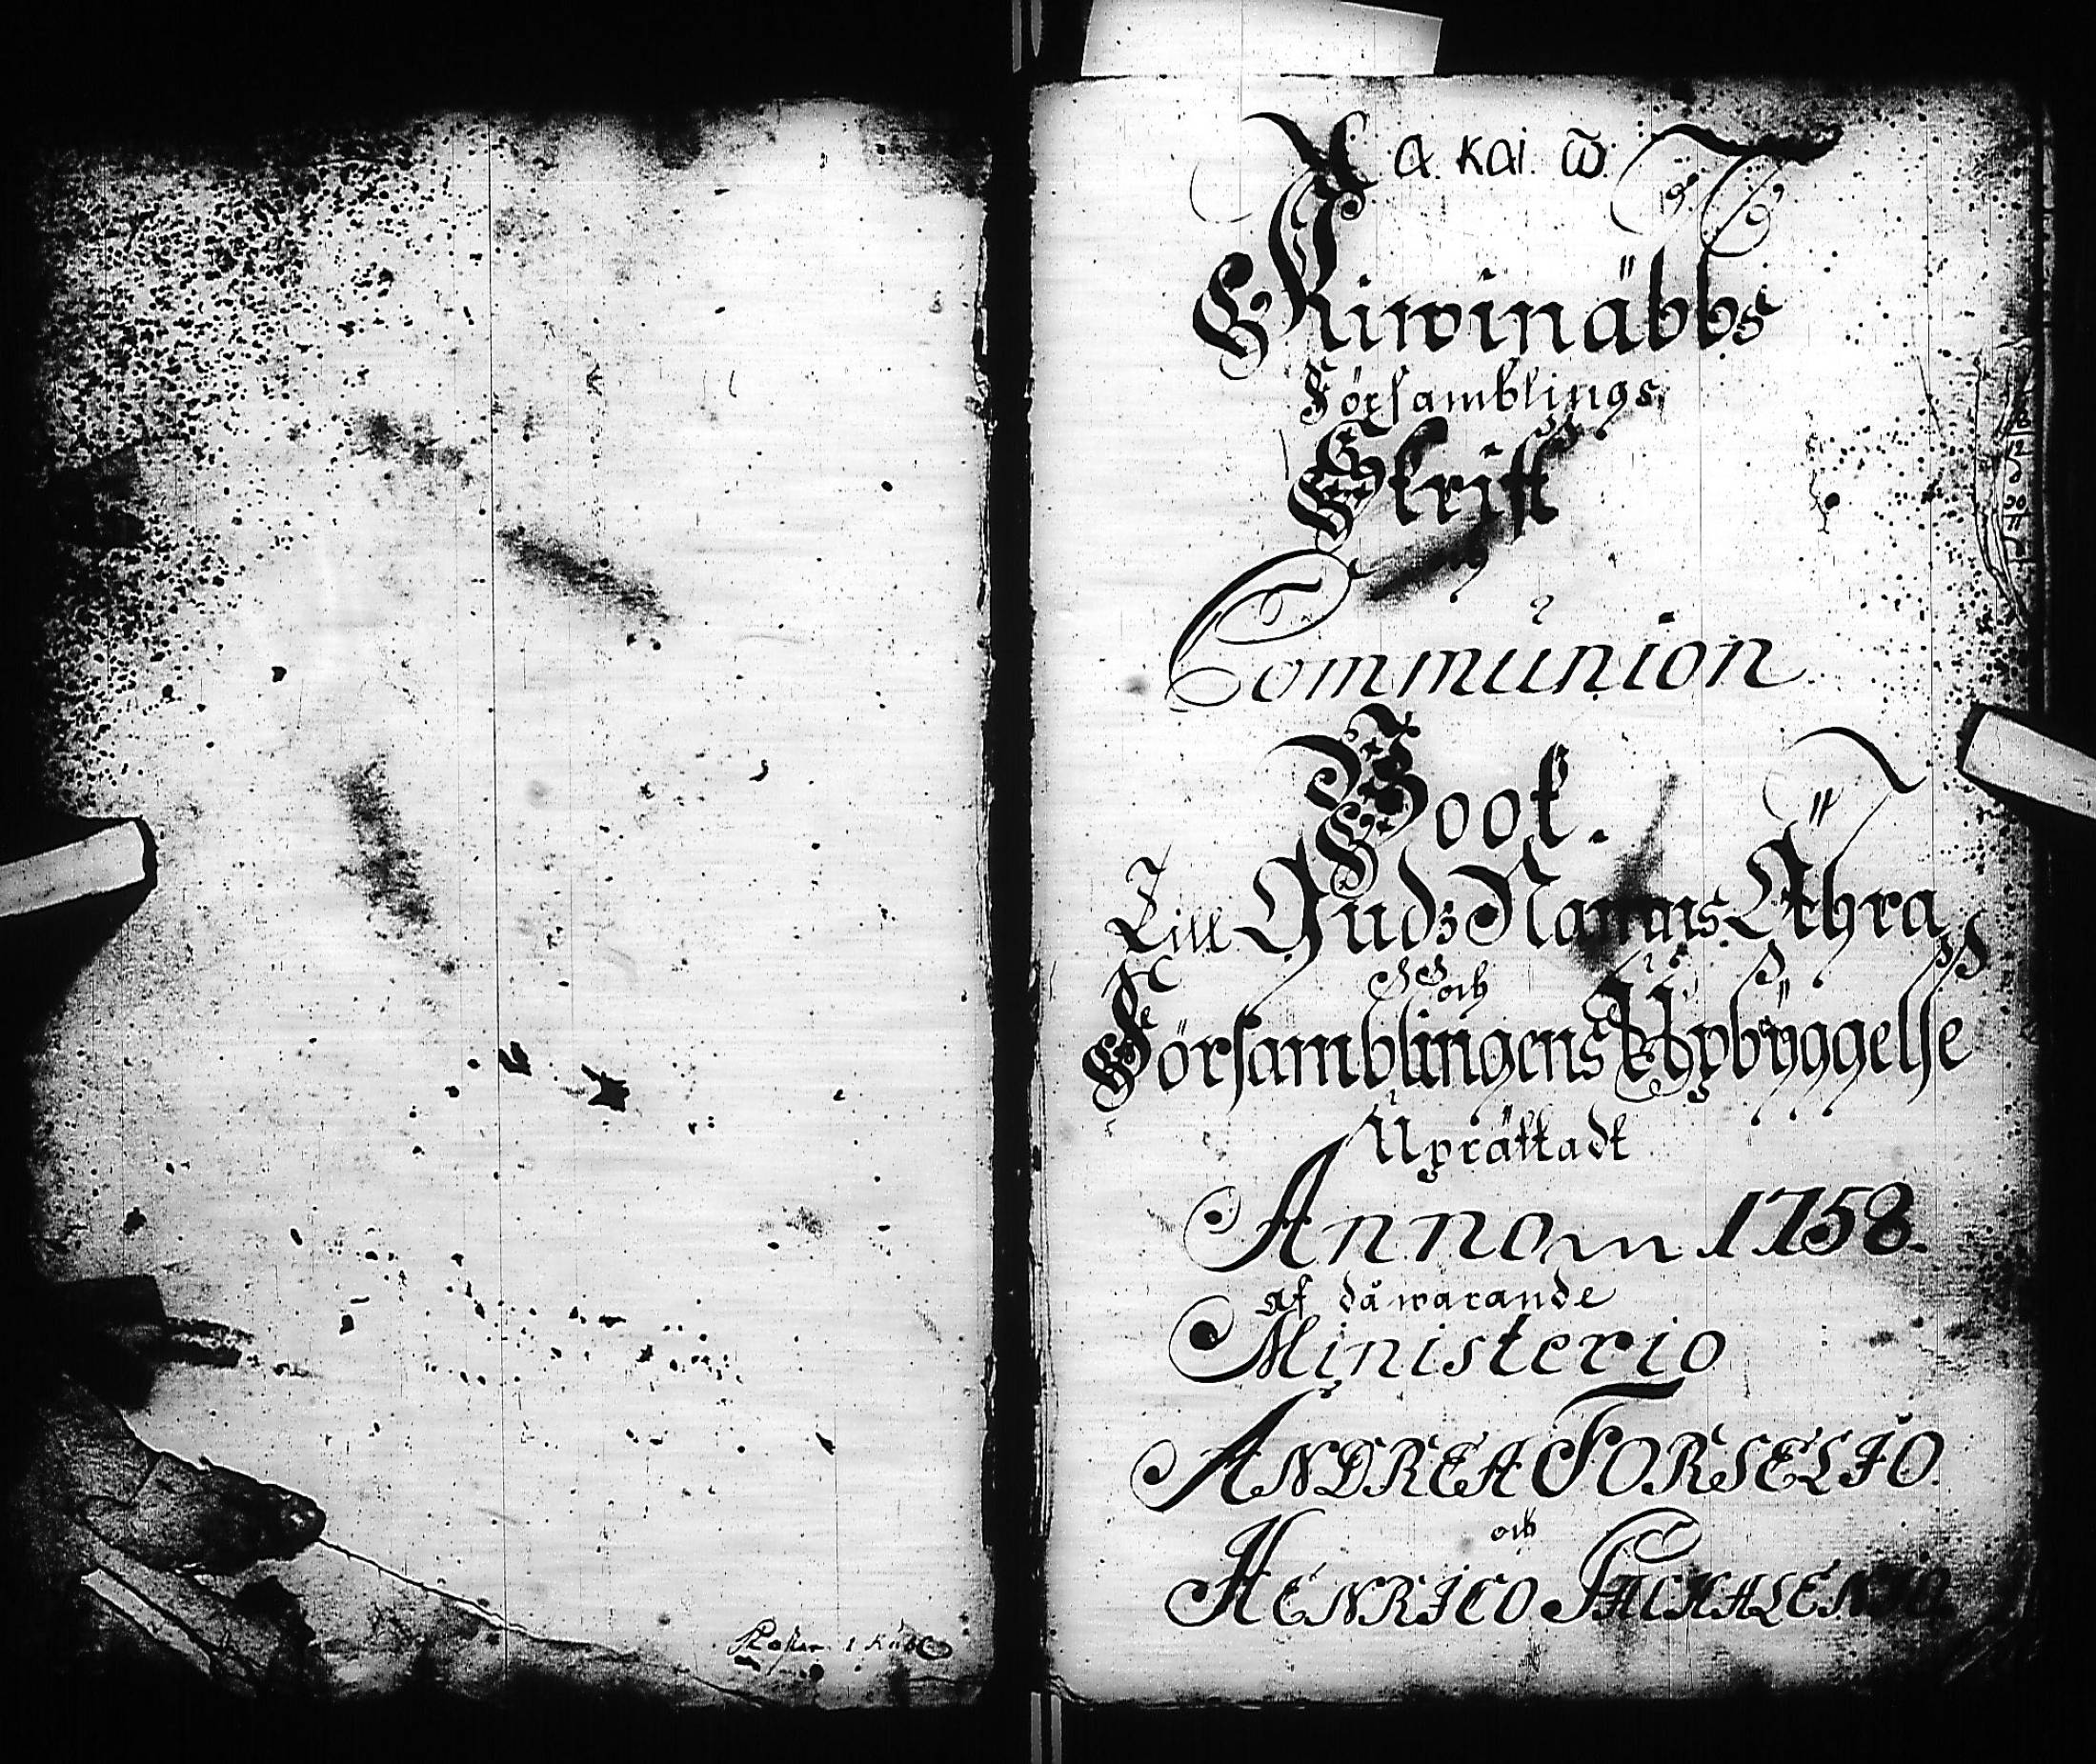 α. καi. ω.
Kiwinäbbs
Församblings
Skrift
Communion
Book.
Till Guds Namns Ähra
och
Församblingens Upbyggelse
Uprättadt
Anno 1758.
af dåwarande
Ministerio
ANDREA FORSELIO.
och
HENRICO PACHALENIO.